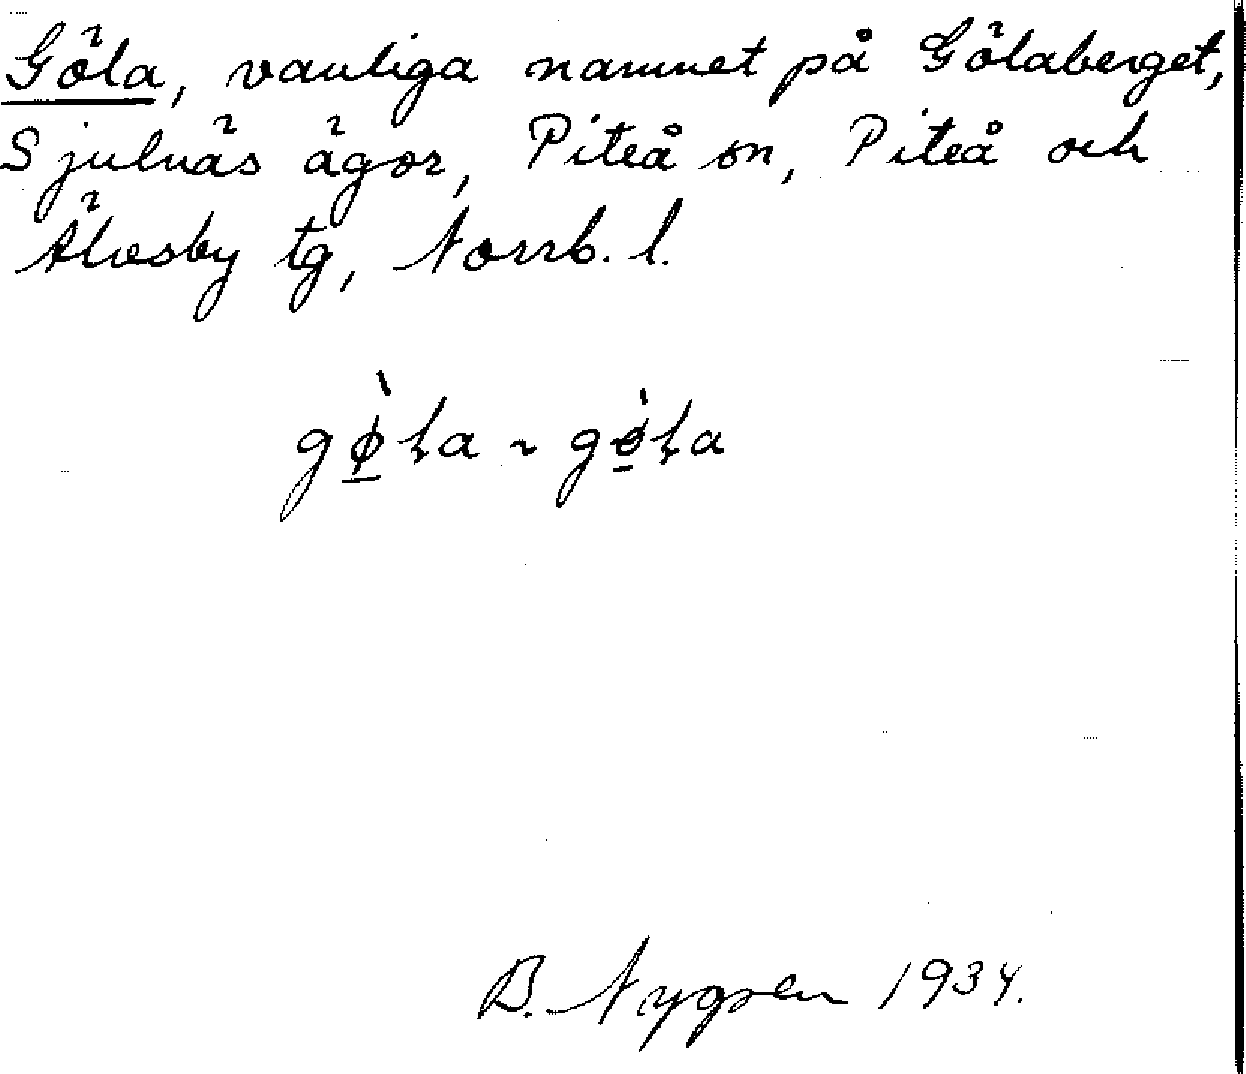 Göla, vanliga namnet på Gölaberget,
Sjulnäs ägor, Piteå sn, Piteå och
Älvsby tg, Norrb. l.
gø̀ła ~ gò̱ła
B. Nygren 1934.